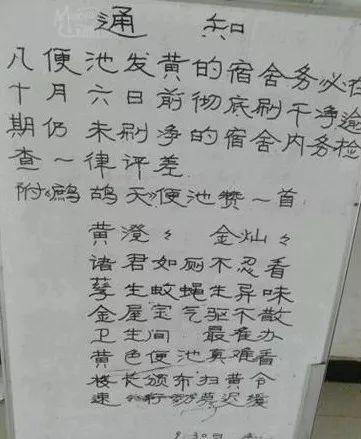 通 知
八便池发黄的宿舍务必在
十月六日前彻底刷干净逾
期仍未刷净的宿舍内务检
查一律评差
附《鹧鸪天》便池赞一首
黄澄々 金灿々
诸君如厕不忍看
孳生蚊蝇生异味
金屋宝气驱不散
卫生间 最难办
黄色便池真难看
楼长颁布扫黄令
速行动莫迟缓
9.30日